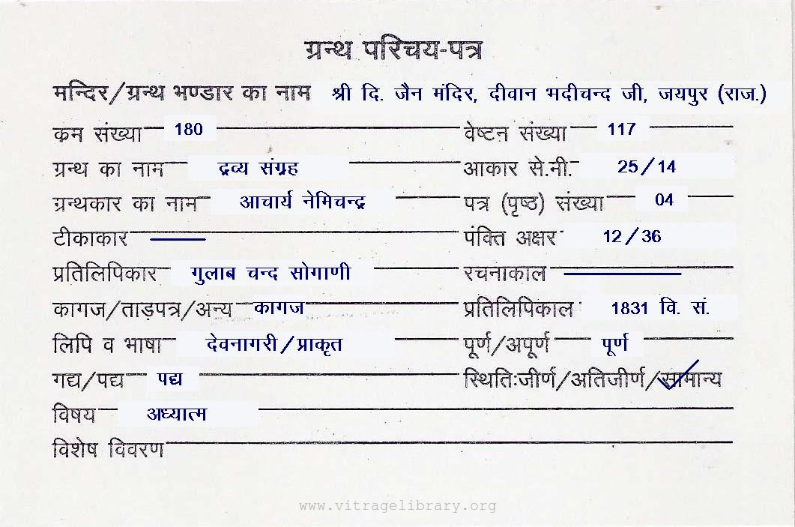 ग्रन्थ परिचय-पत्र
मन्दिर/ग्रन्थ भण्डार का नाम श्री दि. जैन मंदिर, दीवान भदीचन्द जी, जयपुर (राज.)
कम संख्या 180 वेष्टन संख्या 117
ग्रन्थ का नाम द्रव्य संग्रह आकार से.मी. 25/14
ग्रन्थकार का नाम आचार्य नेमिचन्द्र पत्र (पृष्ठ) संख्या 04
टीकाकार पंक्ति अक्षर 12/36
प्रतिलिपिकार गुलाब चन्द सोगाणी रचनाकाल
कागज/ताड़पत्र/अन्य कागज प्रतिलिपिकाल 1831 वि. सं.
लिपि व भाषा देवनागरी/प्राकृत पूर्ण/अपूर्ण पूर्ण
गद्य/पद्य पद्य स्थितिःजीर्ण/अतिजीर्ण/सामान्य
विषय अध्यात्म
विशेष विवरण
www.vitragelibrary.org